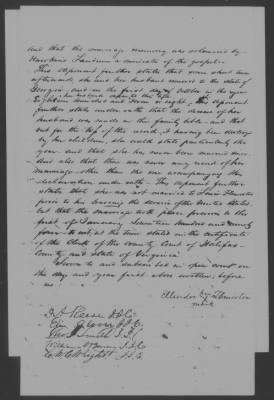 and that the marriage ceremony was solemnised by
Hawkins Landrum a minister of the gospel.
This deponent further states that soon
afterwards, she and her husband moved to the state of
Georgia, and on the first day of October in the year
her husband departed this life
Eighteen hundred and seven or eight, this deponent
further states under oath that the record of her
husband was made in the family bible and that
but for the loss of the record, it having been destroyed
by her children, she could state particularly the
year. And that she has never been married since.
And also that there was never any record of her
marriage other than the one accompanying the
declaration under oath. This deponent further
states that she was not married to
prior to his leaving the service of the United States
but that the marriage took place previous to the
first of January, Seventeen hundred and ninety
four to wit, at the time stated in the certificate
of the Clerk of the County Court of Halifax
County and State of Virginia.
Sworn to and subscribed in open court on
the day and year first above written, before
us
her
mark
Reese J.I.C.
J.I.C.
Smith J.I.C.
William J.I.C.
Wright J.I.C.